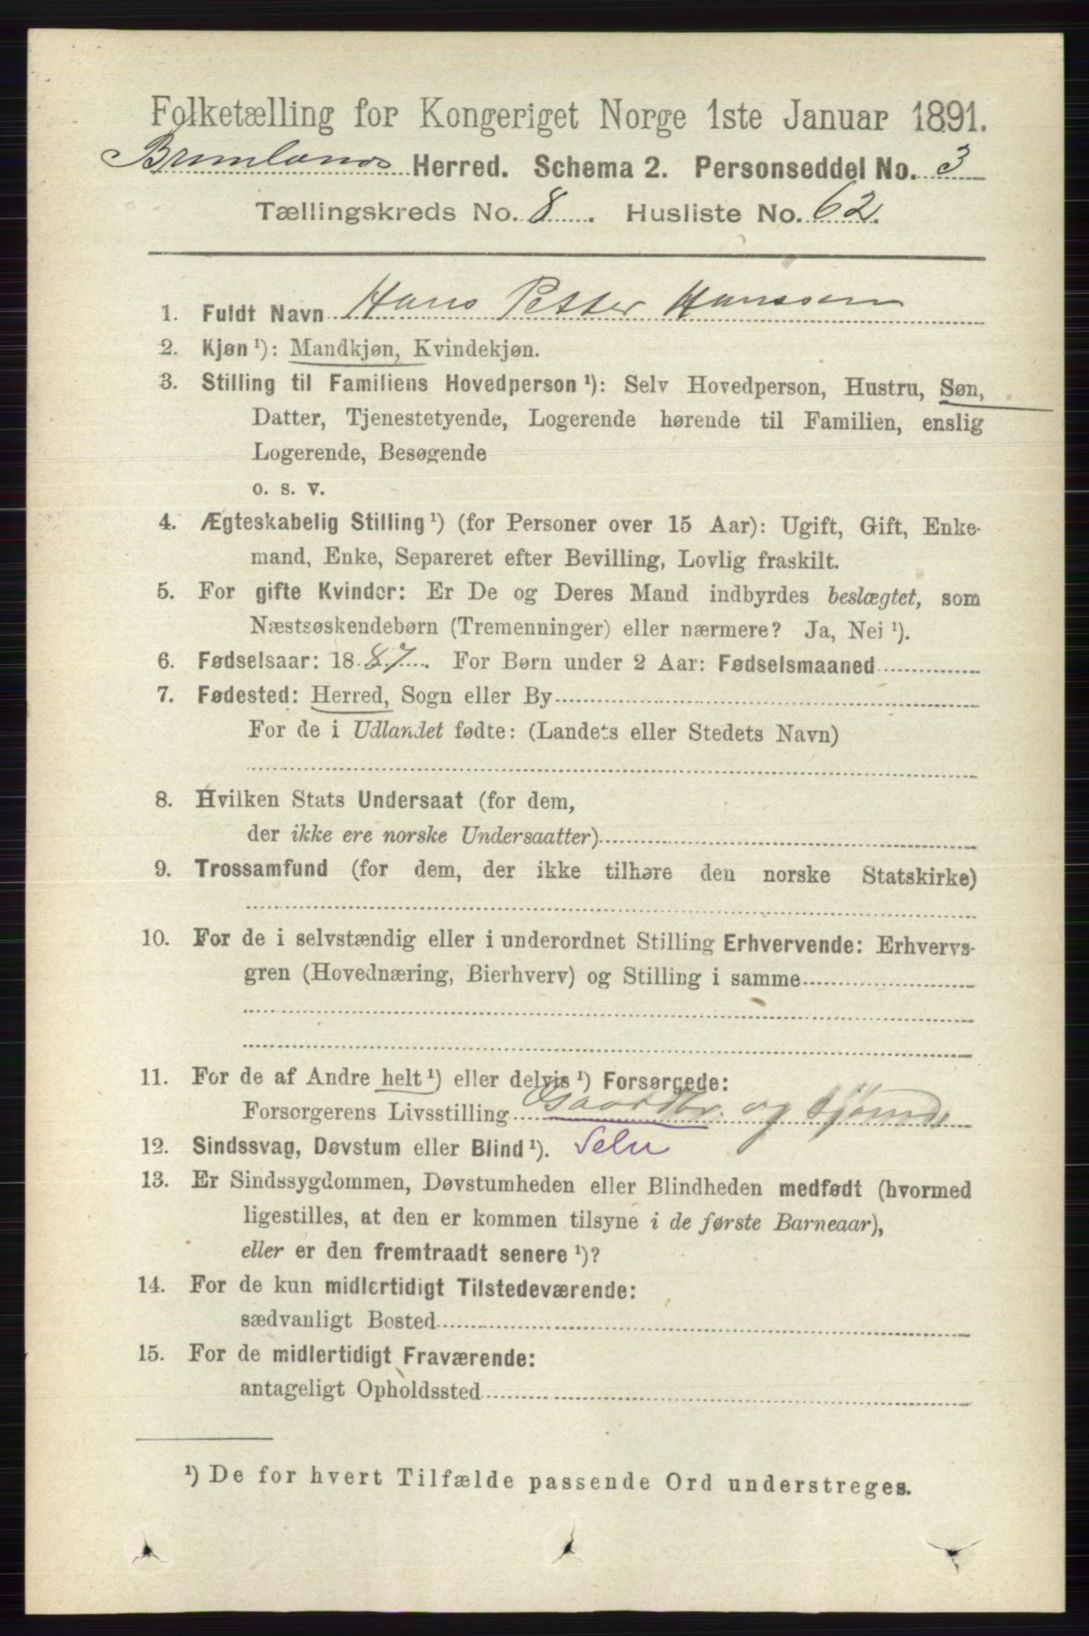 Folketælling for Kongeriget Norge 1ste Januar 1891.
Brunlanes Herred. Schema 2. Personseddel No. 3
Tællingskreds No. 8. Husliste No. 62.
1. Fuldt Navn Hans Petter Hanssen
2. Kjøn ¹): Mandkjøn, Kvindekjøn.
3. Stilling til Familiens Hovedperson ¹): Selv Hovedperson, Hustru, Søn,
Datter, Tjenestetyende, Logerende hørende til Familien, enslig
Logerende, Besøgende
o. s. v.
4. Ægteskabelig Stilling ¹) (for Personer over 15 Aar): Ugift, Gift, Enke-
mand, Enke, Separeret efter Bevilling, Lovlig fraskilt.
5. For gifte Kvinder: Er De og Deres Mand indbyrdes beslægtet, som
Næstsøskendebørn (Tremenninger) eller nærmere? Ja, Nei ¹).
6. Fødselsaar: 1887. For Børn under 2 Aar: Fødselsmaaned
7. Fødested: Herred, Sogn eller By
For de i Udlandet fødte: (Landets eller Stedets Navn)
8. Hvilken Stats Undersaat (for dem,
der ikke ere norske Undersaatter)
9. Trossamfund (for dem, der ikke tilhøre den norske Statskirke)
10. For de i selvstændig eller i underordnet Stilling Erhvervende: Erhvervs-
gren (Hovednæring, Bierhverv) og Stilling i samme
11. For de af Andre helt ¹) eller delvis ¹) Forsørgede:
Forsørgerens Livsstilling Gaardbr. og Sjømd.
12. Sindssvag, Døvstum eller Blind ¹). Selv
13. Er Sindssygdommen, Døvstumheden eller Blindheden medfødt (hvormed
ligestilles, at den er kommen tilsyne i de første Barneaar),
eller er den fremtraadt senere ¹)?
14. For de kun midlertidigt Tilstedeværende:
sædvanligt Bosted
15. For de midlertidigt Fraværende:
antageligt Opholdssted
¹) De for hvert Tilfælde passende Ord understreges.